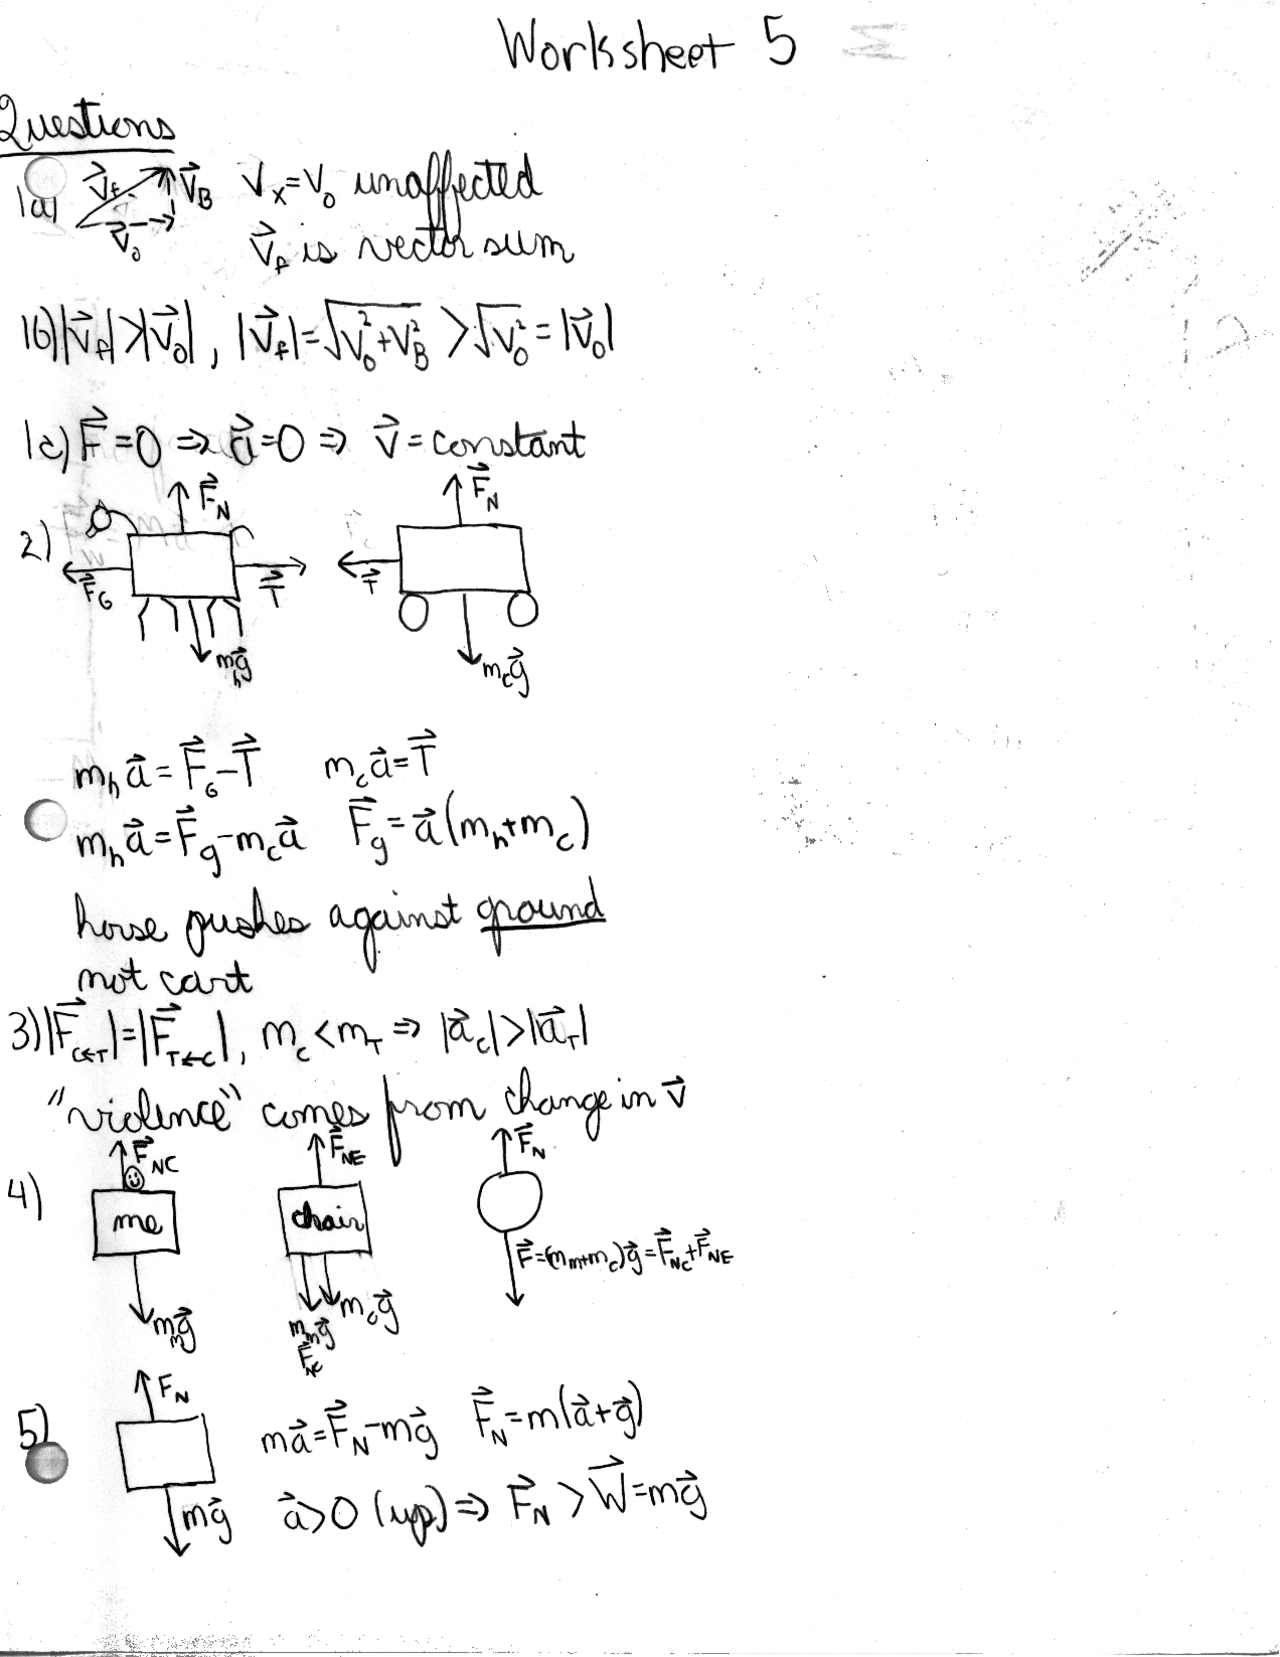 Worksheet 5
Questions
1a) V⃗f V⃗B V⃗0 Vx=V0 unaffected
V⃗f is vector sum
1b) |V⃗f|>|V⃗0|, |V⃗f|=√(V0²+VB²) > √(V0²) = |V⃗0|
1c) F⃗=0 ⇒ a⃗=0 ⇒ v⃗=constant
2) F⃗N F⃗N
F⃗G T⃗ T⃗
mhg⃗ mcg⃗
mha⃗=F⃗G-T⃗ mca⃗=T⃗
mha⃗=F⃗g-mca⃗ F⃗g=a⃗(mh+mc)
horse pushes against ground
not cart
3) |F⃗C←T|=|F⃗T←C|, mc<mT ⇒ |a⃗c|>|a⃗T|
"violence" comes from change in v⃗
4) F⃗NC F⃗NE F⃗N
me chair
F⃗=(mm+mc)g⃗=F⃗NC+F⃗NE
mmg⃗ mmg⃗ mcg⃗
F⃗NC
5) FN ma⃗=F⃗N-mg⃗ F⃗N=m(a⃗+g⃗)
mg⃗ a⃗>0 (up) ⇒ F⃗N>W⃗=mg⃗